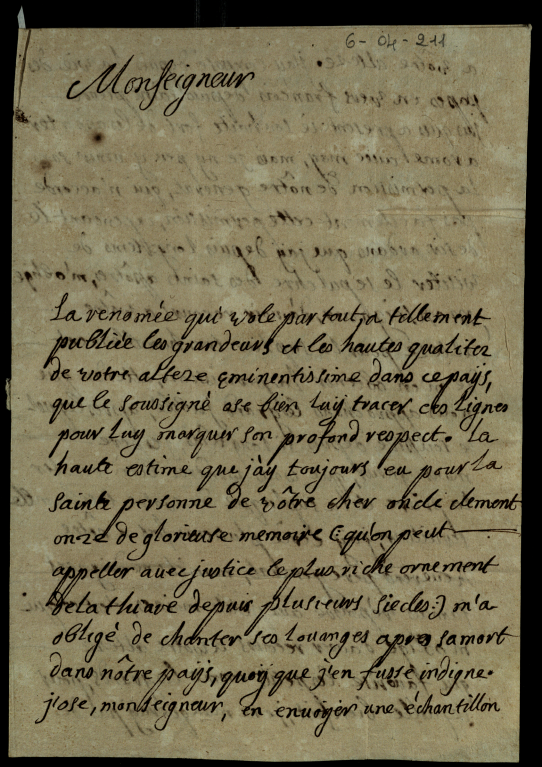 6-04-211
Monseigneur
La renomée qui vole par tout, a tellement
publiée les grandeurs et les hautes qualitez
de votre alteze eminentissime dans ce païs,
que le soussigné ose bien luy tracer ces lignes
pour luy marquer son profond respect. la
haute estime que j'ày toujours eu pour la
sainte personne de vôtre cher oncle clement
onze de glorieuse memoire (: qu'on peut
appeller avec justice le plus riche ornement
de la thiare depuis plusieurs siecles :) m'a
obligé de chanter ses louanges apres sa mort
dans nôtre païs, quoy que j'en fusse indigne.
j'ose, monseigneur, en envoyer une échantillon